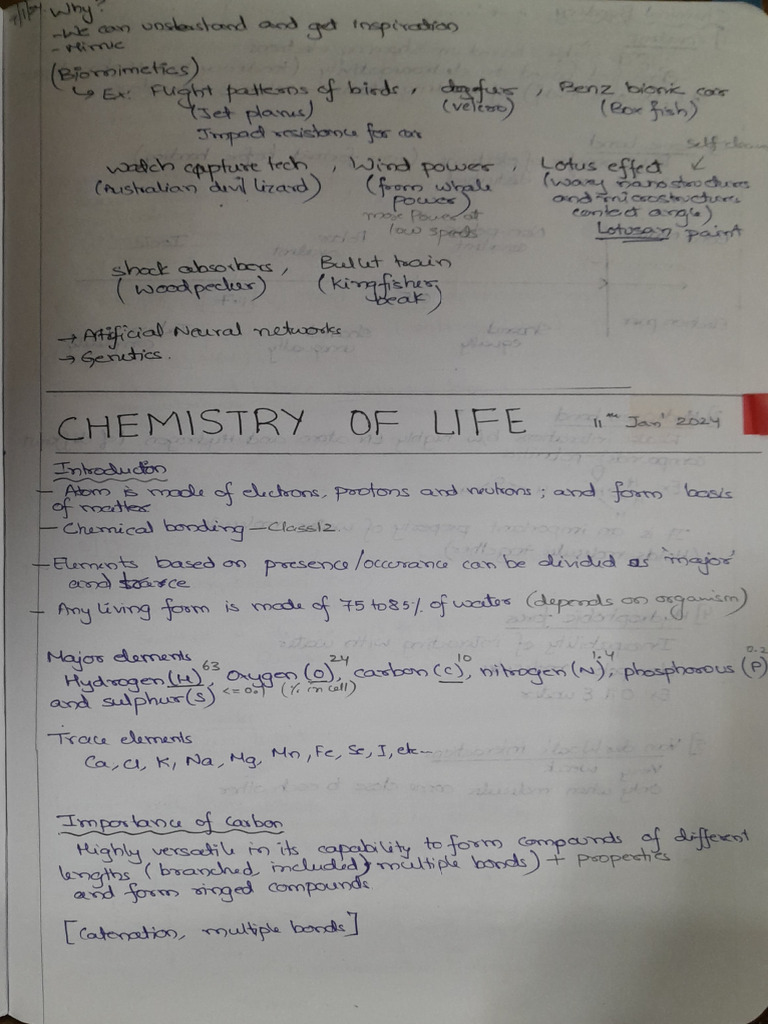 Why?
-We can unsterstand and get inspiration
- Mimic
(Biomimetics)
↳ Ex: Flight patterns of birds, dog fur, Benz bionic car
(Jet planes) (velcro) (Box fish)
Impact resistance for car
watch capture tech, Wind power, Lotus effect ↙
(Australian devil lizard) (from whale (waxy nanostructures
power) and microstructures
more Power at contact angle)
low speeds Lotusan paint
shock absorbers, Bullet train
(woodpecker) (Kingfisher
beak)
→ Artificial Neural networks
→ Genetics.
CHEMISTRY OF LIFE 11th Jan' 2024
Introduction
- Atom is made of electrons, protons and neutrons; and form basis
of matter
- Chemical bonding - Class 12
- Elements based on presence/occurance can be divided as 'major'
and trace
- Any living form is made of 75 to 85% of water (depends on organism)
Major elements
Hydrogen (H) 63, Oxygen (O) 24, carbon (C) 10, nitrogen (N) 1.4, phosphorous (P) 0.2
and sulphur (S) (% in cell)
Trace elements
Ca, Cl, K, Na, Mg, Mn, Fe, Se, I, etc--
Importance of carbon
Highly versatile in its capability to form compounds of different
lengths (branched, included, multiple bonds) + properties
and form ringed compounds.
[Catenation, multiple bonds]